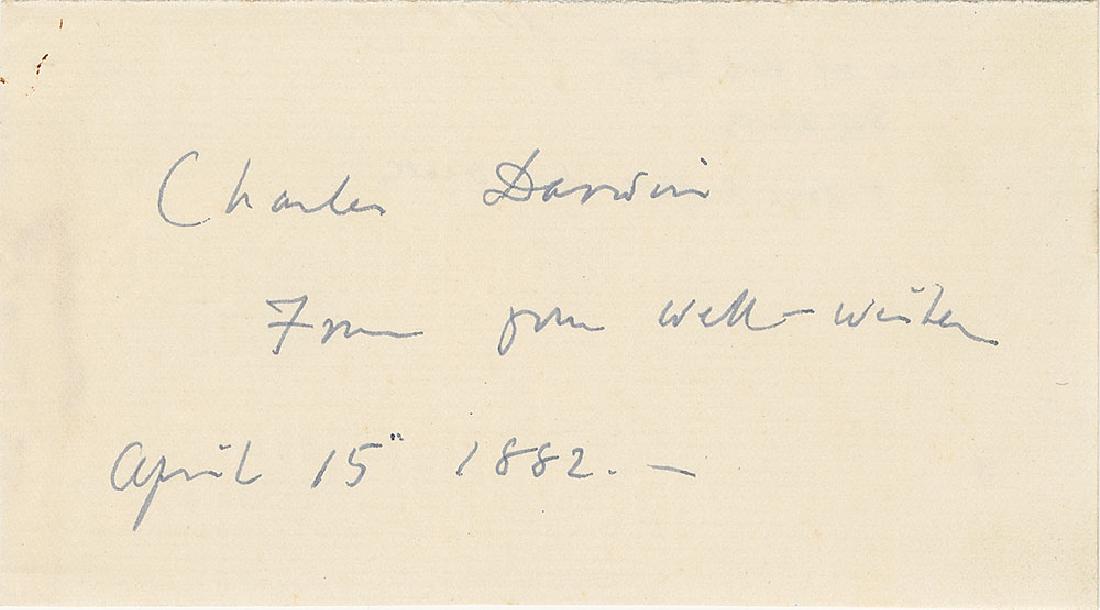 Charles Darwin
From your well-wisher
April 15" 1882. —